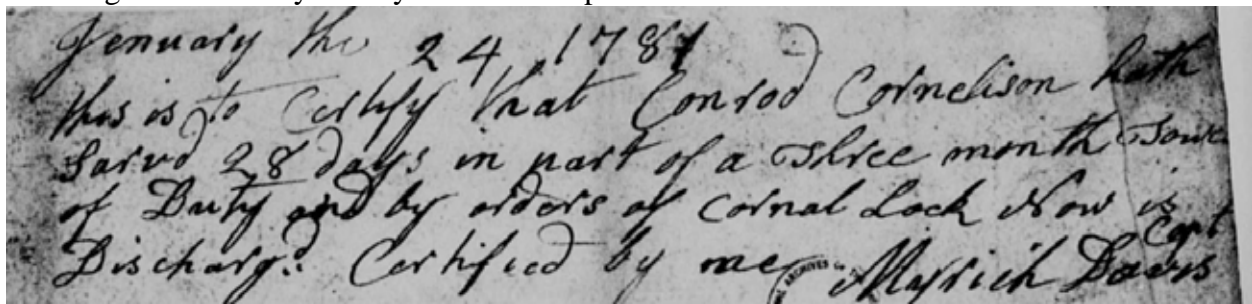 Jenuary the 24 1781
this is to Certify that Conrod Cornelison hath
Sarvd 28 days in part of a Three month Towr
of Duty and by orders of Cornal Lock Now is
Discharg.d Certified by me Capt
Davis